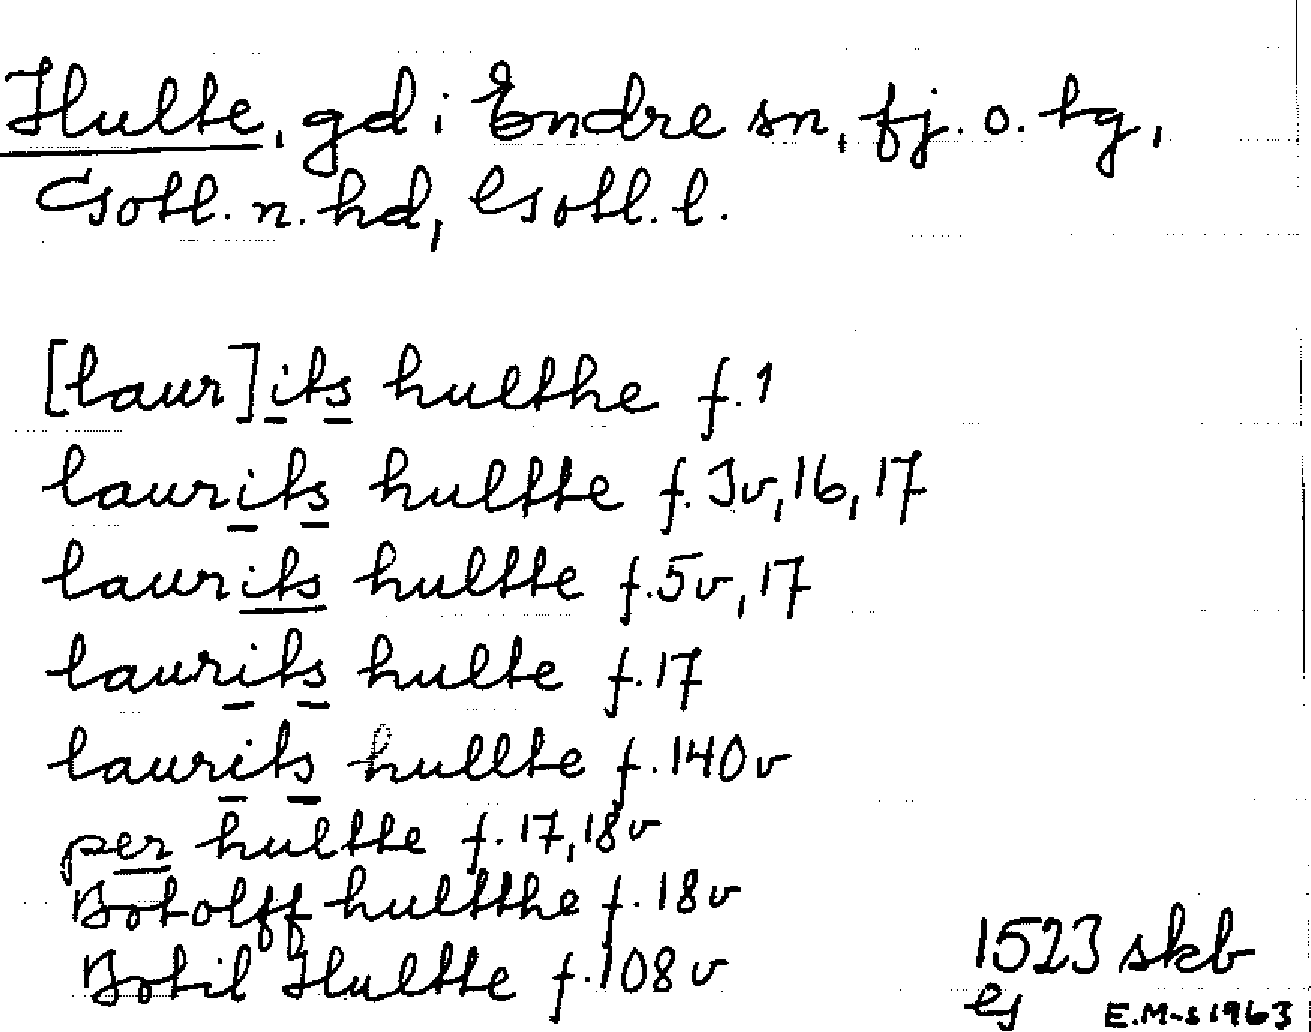 Hulte, gd i Endre sn, fj. o. tg,
Gotl. n. hd, Gotl. l.
[laur]its hulthe f. 1
laurits hultte f. 3v, 16, 17
laurits hultte f. 5v, 17
laurits hulte f. 17
laurits hullte f. 140v
per hultte f. 17, 18v
Botolff hultthe f. 18v
Botil Hultte f. 108v
1523 skb
G E.M-s 1963